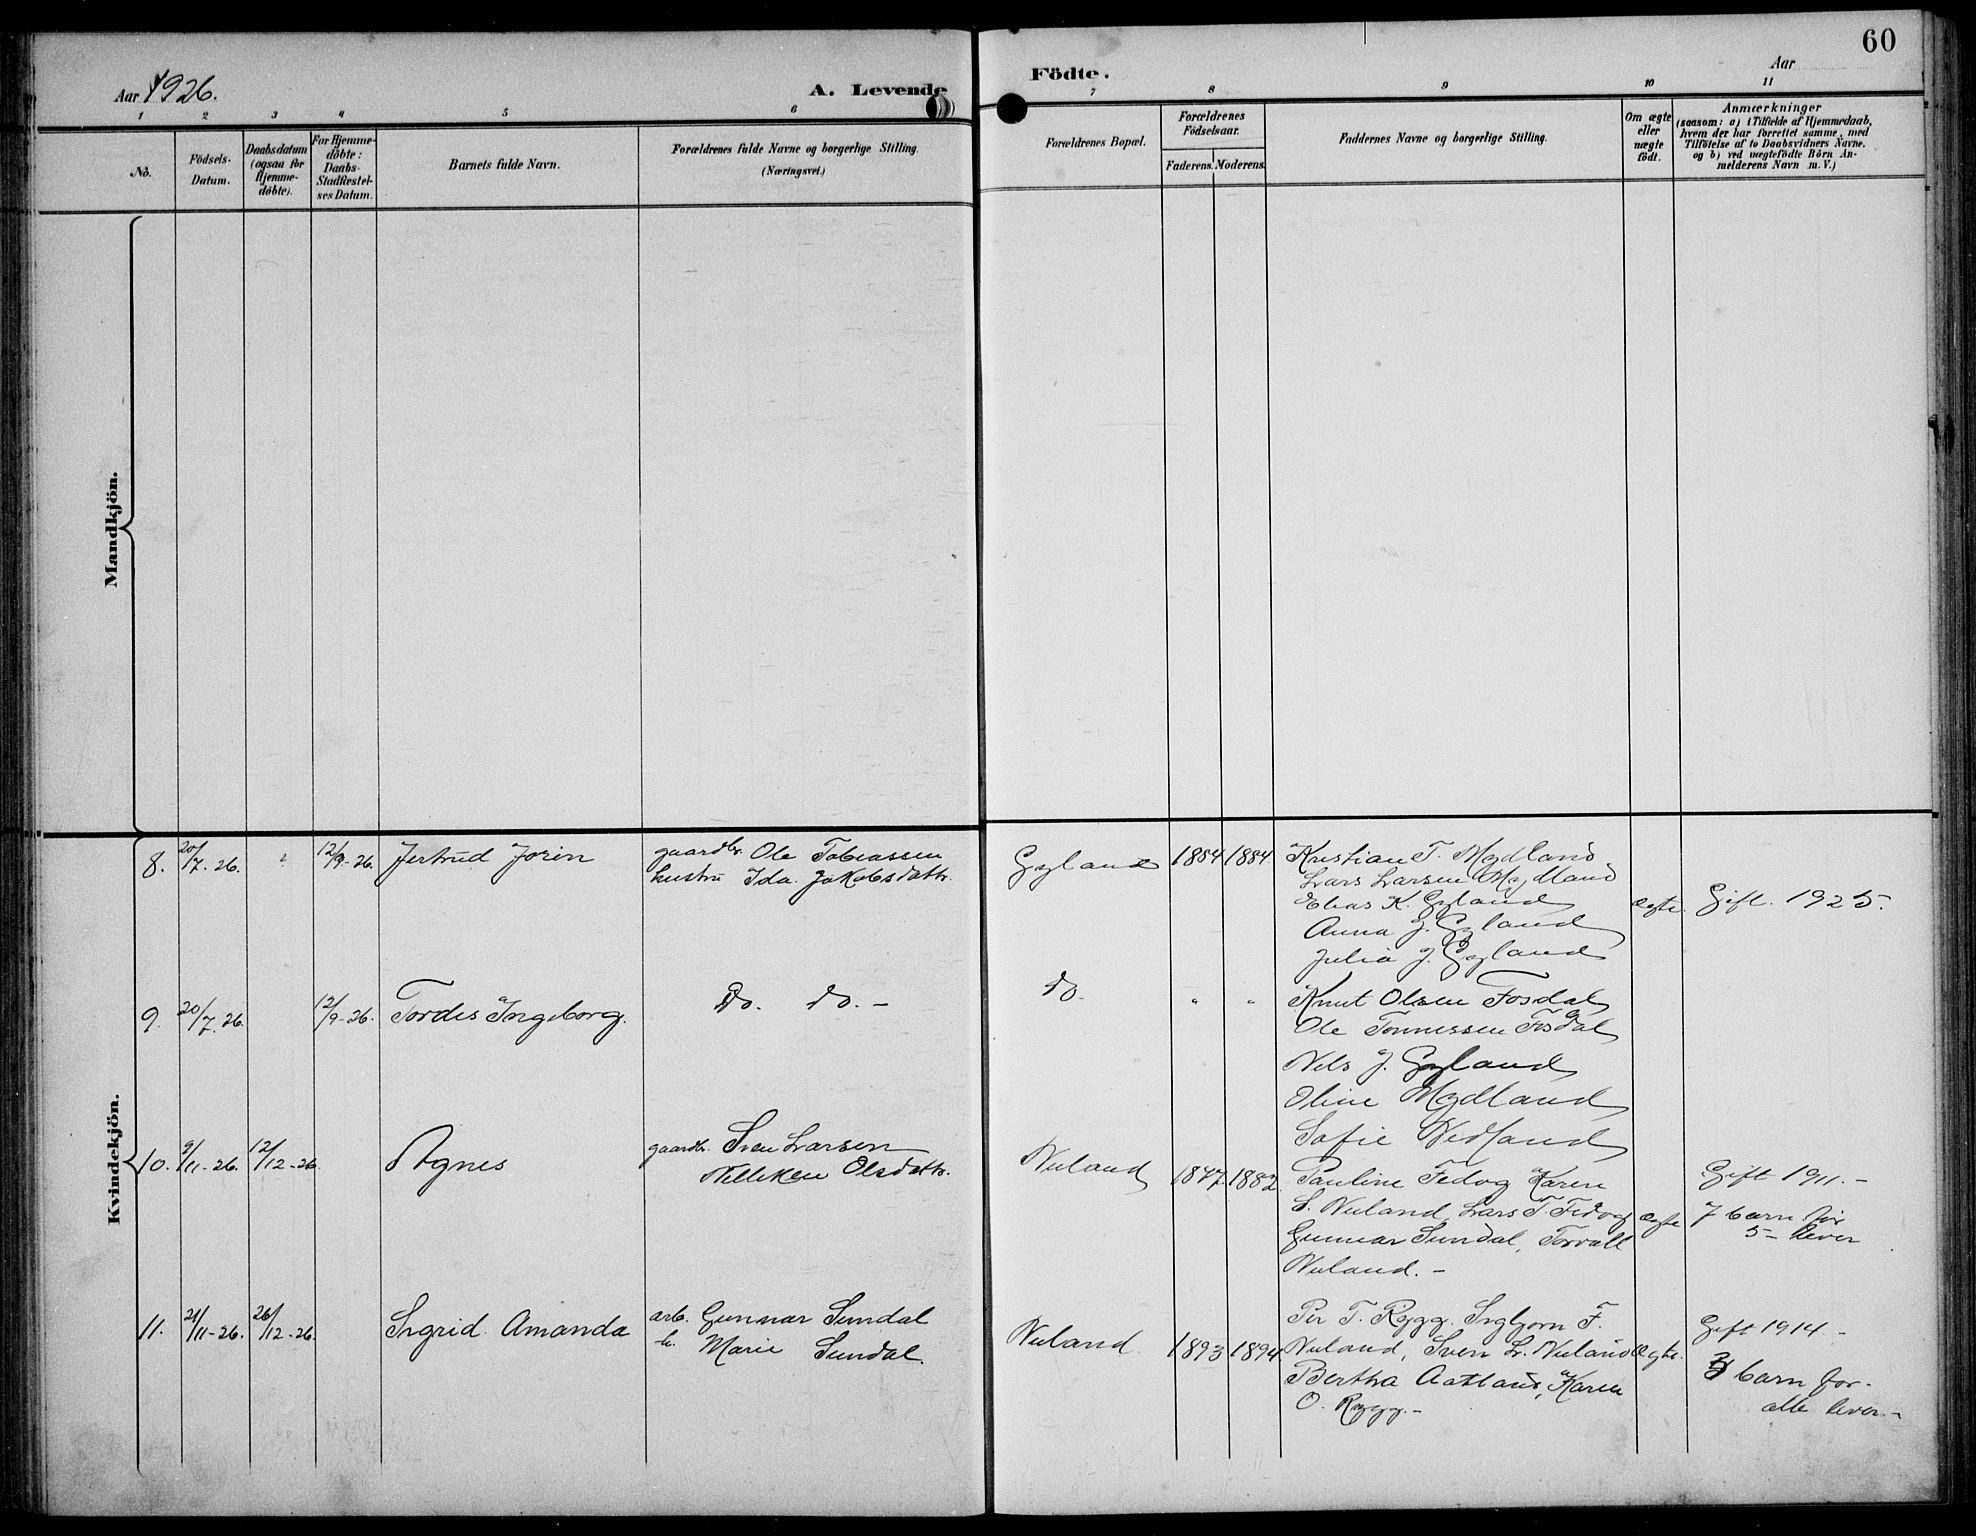 60
Aar 1926.
A. Levende
Födte.
Aar
1 2 3 4 5 6 7 8 9 10 11
No.
Födsels-Datum.
Daabsdatum (ogsaa for Hjemme-döbte).
For Hjemme-döbte: Daabs-Stadfæstel-ses Datum.
Barnets fulde Navn.
Forældrenes fulde Navne og borgerlige Stilling.
(Næringsvei.)
Forældrenes Bopæl.
Forældrenes Födselsaar.
Faderens. Moderens.
Faddernes Navne og borgerlige Stilling.
Om ægte eller uægte födt.
Anmærkninger
(saasom: a) i Tilfælde af Hjemmedaab,
hvem der har forrettet samme, med
Tilföielse af to Daabsvidners Navne,
og b) ved uægtefödte Börn An-
melderens Navn m. V.)
Mandkjön.
Kvindekjön.
8. 20/7. 26. 12/9-26. Jertrud Jorin
gaardbr. Ole Tobiassen
hustru Ida Jakobsdattr.
Gyland 1884 1884
Kristian T. Mydland
Lars Larsen Mydland
Elias K. Gyland
Anna J. Gyland
Julia J. Gyland
ægte. Gift. 1925.
9. 20/7. 26. 12/9-26. Tordis Ingeborg.
Do. do. -
do. " "
Knut Olsen Fosdal
Ole Tønnessen Fosdal
Nels J. Gyland
Oline Mydland
Sofie Vedland
10. 9/11-26. 12/12-26. Agnes
gaardbr. Sven Larsen
Olsdattr.
Nuland 1847. 1882
Pauline Fedog Karen
S. Nuland, Lars T. Fedog
Gunnar Sundal, Torvall
Nuland. -
ægte
Gift 1911. -
7 barn før
5 - lever
11. 21/11-26. 26/12-26. Ingrid Amanda
arb. Gunnar Sundal
h. Marie Sundal.
Nuland. 1893 1894
Per T. Rygg. Ingbjorn F.
Nuland, Sven L. Nuland
Bertha Aatland, Karen
O. Rygg. -
ægte.
Gift 1914 -
barn før -
alle lever -